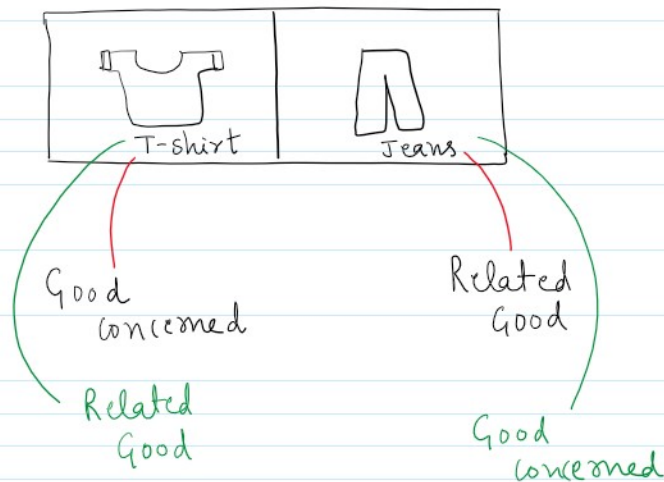 T-shirt
Jeans
Good
concerned
Related
Good
Related
Good
Good
concerned